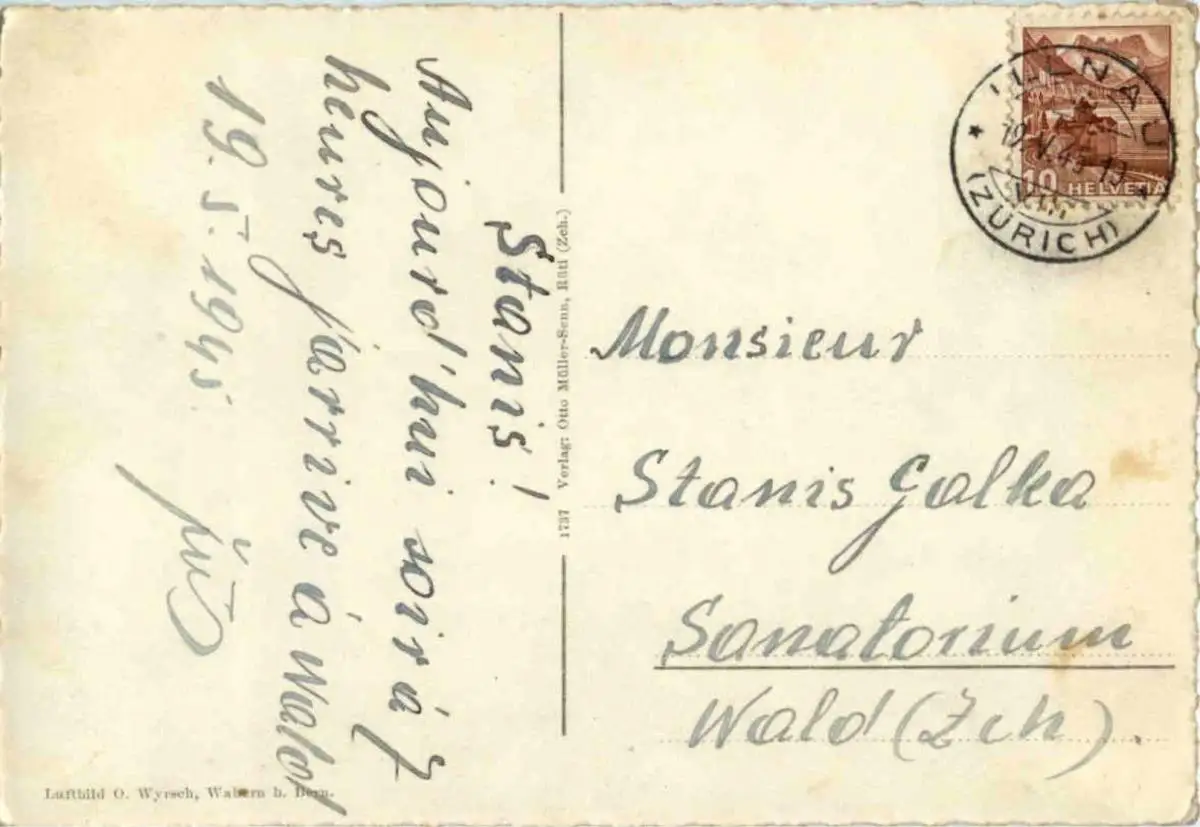 Stanis!
Aujourd'hui soir á 7
heures j'arrive á Wald
19. 5. 1945.
1737 Verlag: Otto Müller-Senn, Rüti (Zch.)
Luftbild O. Wyrsch, Wabern b. Bern.
ILLNAU
(ZÜRICH)
10 HELVETIA
Monsieur
Stanis Galka
Sanatorium
Wald (Zch).